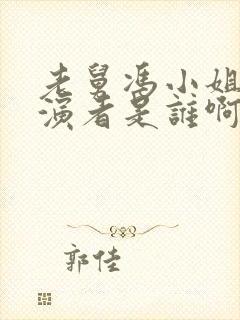 老舅冯小姐
演者是誰啊
郭佳